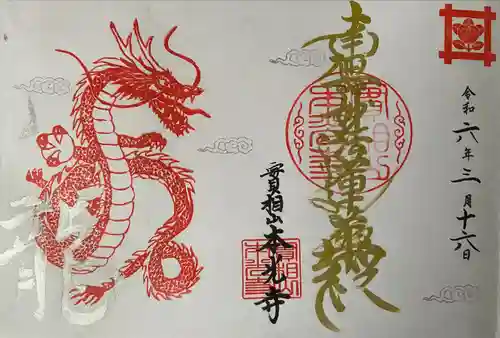 令和六年三月十六日
南無妙法蓮華経
實相山本光寺